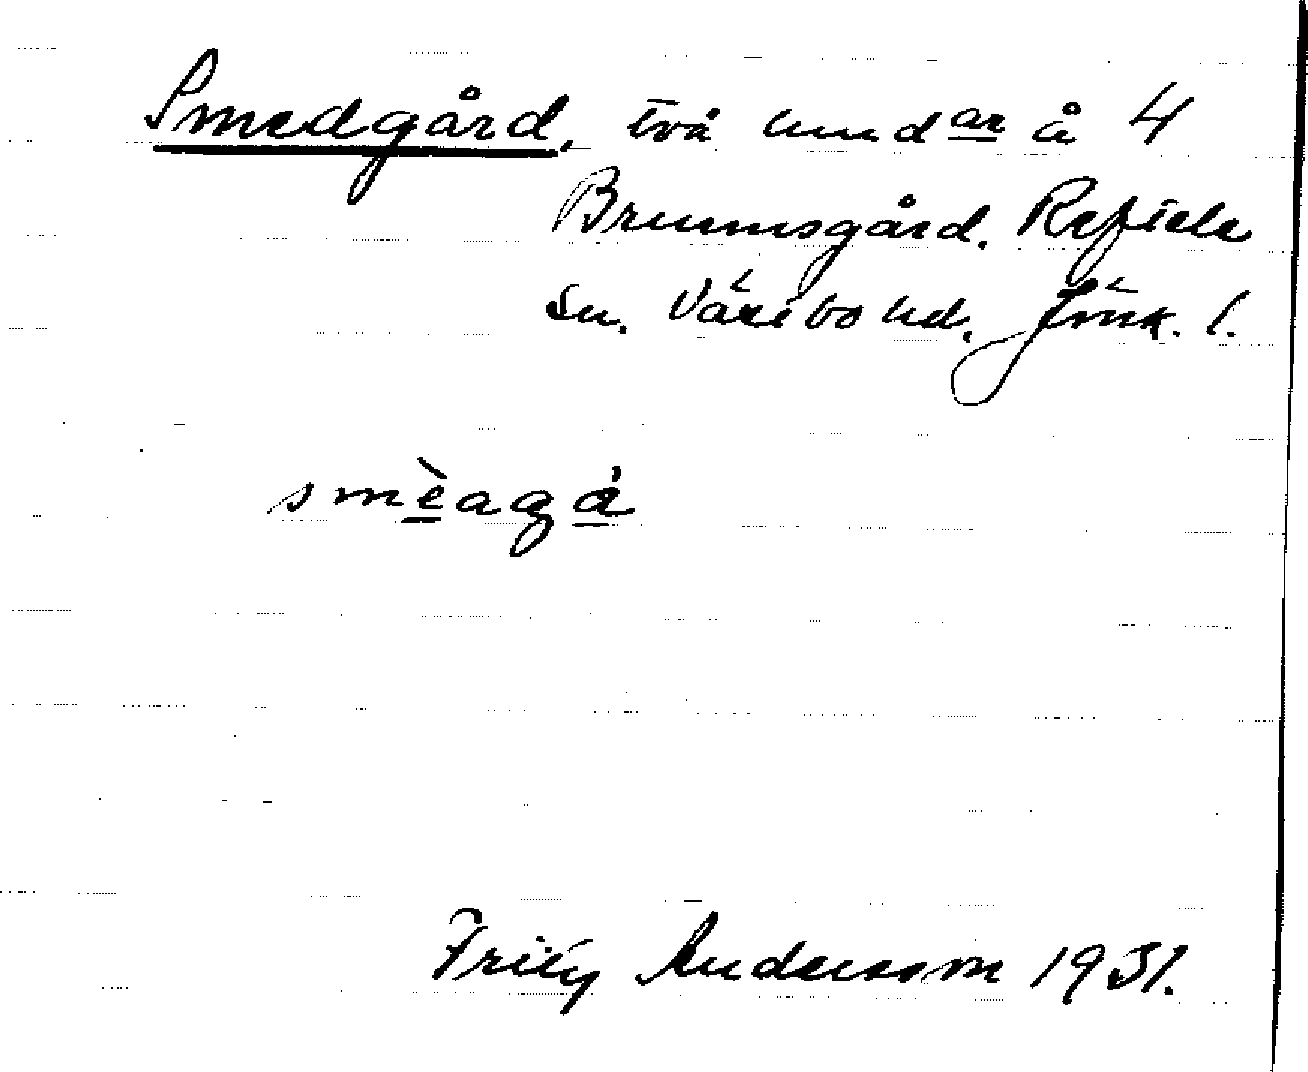 Smedgård, två lund ar å 4
Brunnsgård. Reftele
Sn. Västbo hd. Jönk. l.
smèagå
Fritz Andersson 1931.